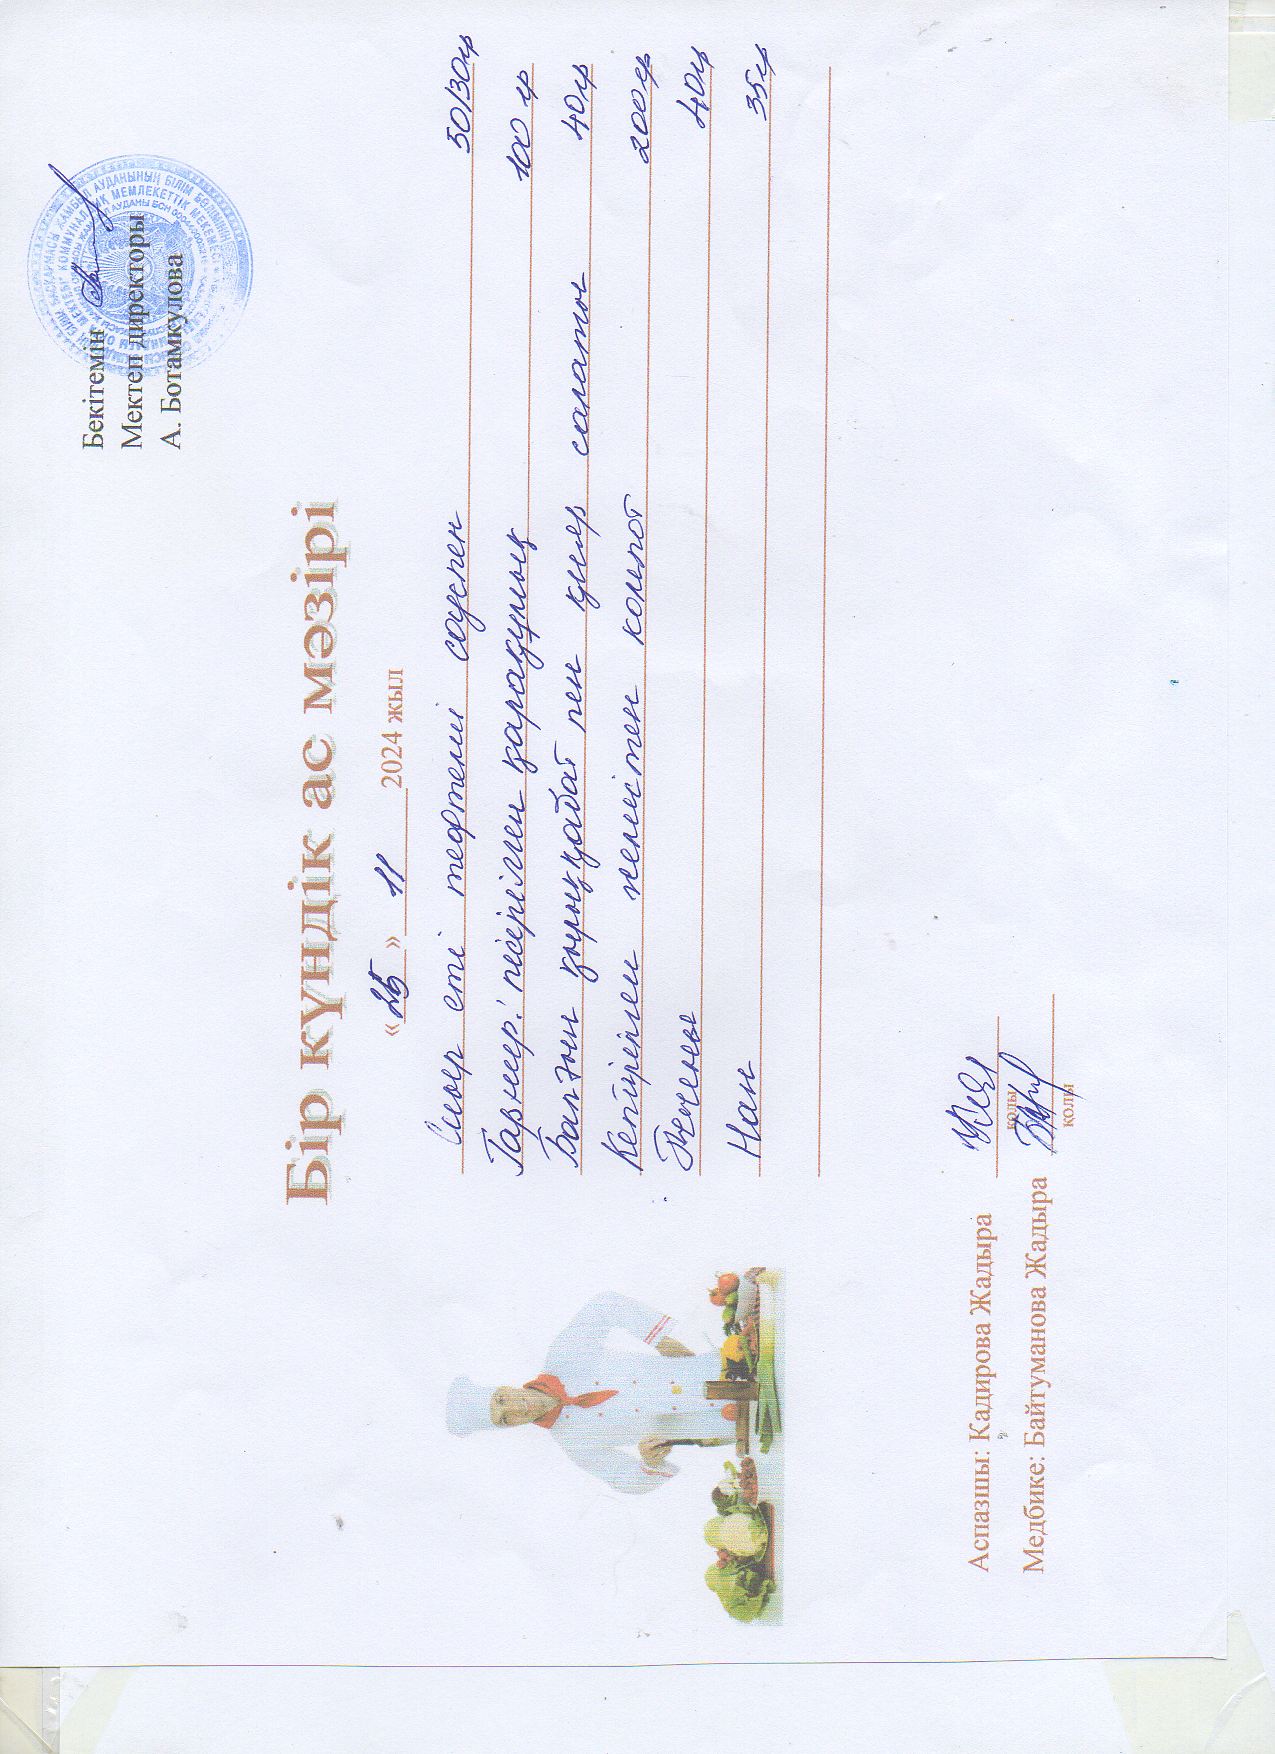 Бекітемін
Мектеп директоры
А. Ботамкулова
Бір күндік ас мәзірі
« 25 » 11 2024 жыл
Сиыр еті тефтели соуспен 50/30гр
Гарнир: пісірілген қарақұмық 100 гр
Балғын қырыққабат пен қияр салаты 40гр
Кептірілген жемістен компот 200гр
Печенье 40гр
Нан 35гр
Аспазшы: Кадирова Жадыра
қолы
Медбике: Байтуманова Жадыра
қолы